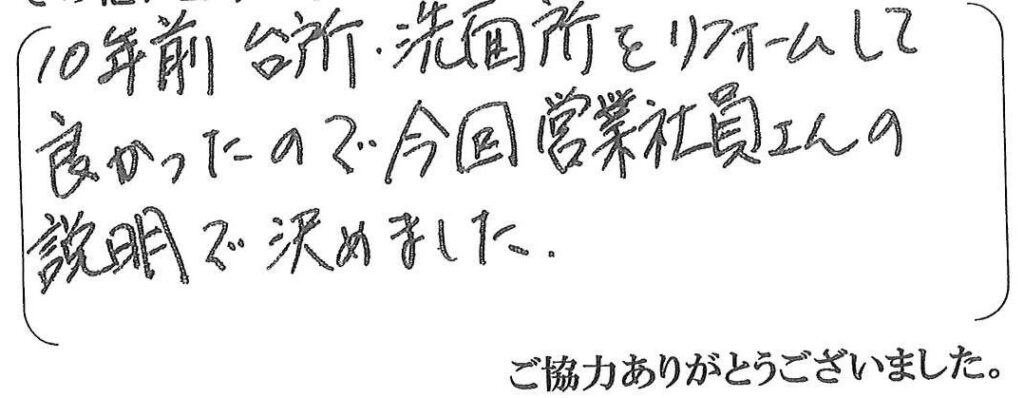 10年前 台所・洗面所をリフォームして
良かったので今回営業社員さんの
説明で決めました.
ご協力ありがとうございました。